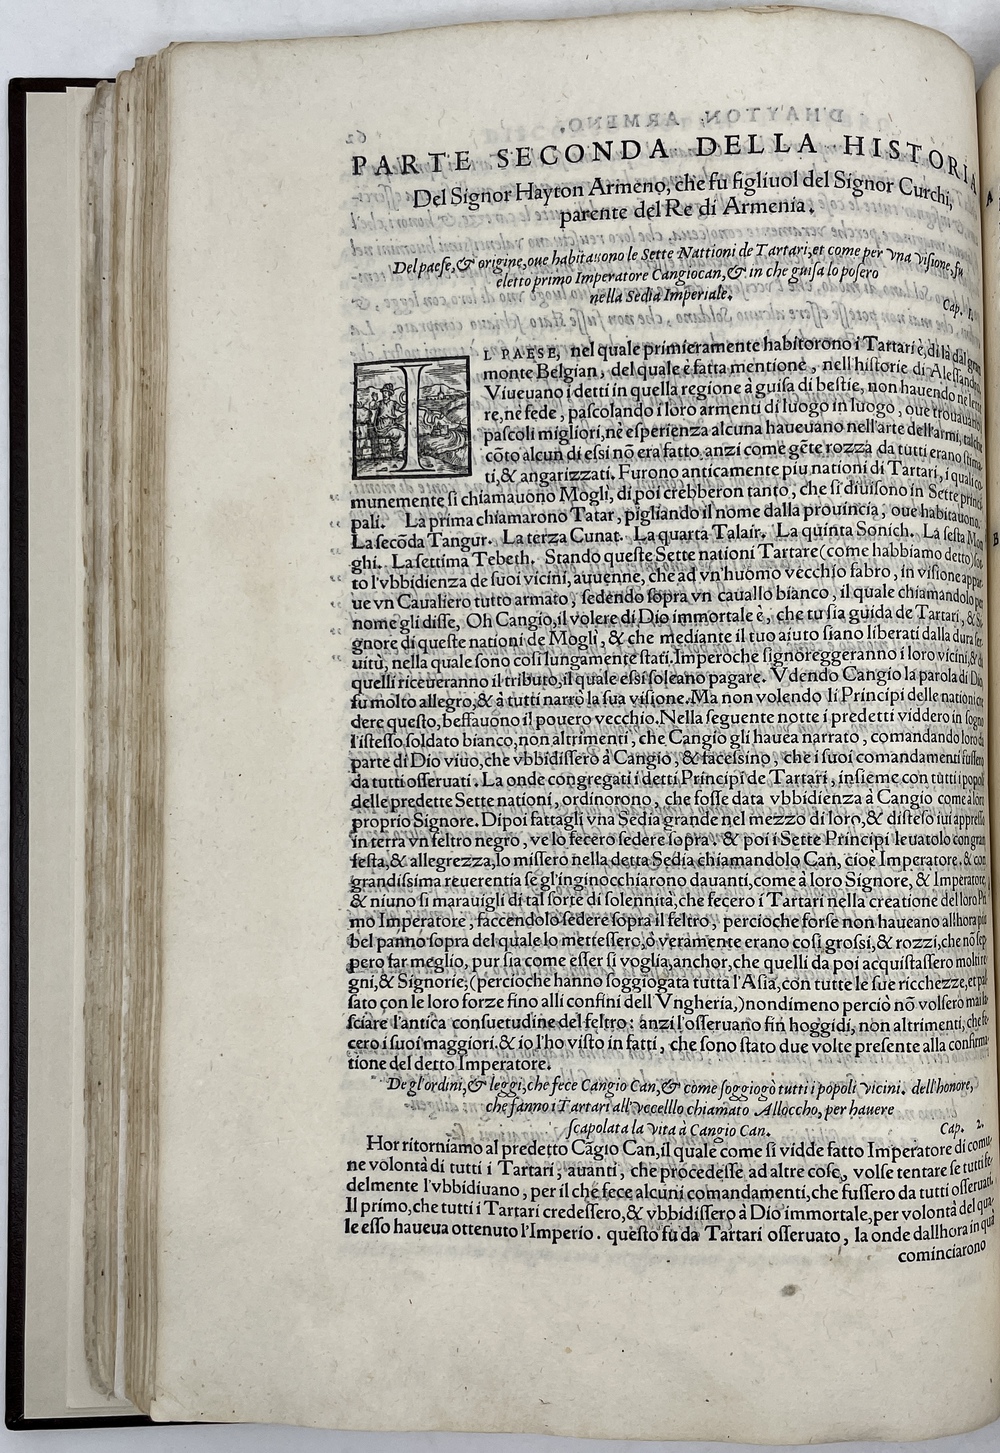 PARTE SECONDA DELLA HISTORIA
Del Signor Hayton Armeno, che fu figliuol del Signor Curchi,
parente del Re di Armenia.
Del paese, & origine, oue habitauono le Sette Nattioni de Tartari, et come per vna visione, fu
eletto primo Imperatore Cangiocan, & in che guisa lo posero
nella Sedia Imperiale.
Cap. 1.
IL PAESE, nel quale primieramente habitorono i Tartari è, di là dal gran
monte Belgian, del quale è fatta mentione, nell'historie di Alessandro,
Viueuano i detti in quella regione à guisa di bestie, non hauendo nè lette
re, nè fede, pascolando i loro armenti di luogo in luogo, oue trouauano
pascoli migliori, nè esperienza alcuna haueuano nell'arte dell'armi, talche
cōto alcun di essi nō era fatto, anzi come gēte rozza da tutti erano stima
ti, & angarizzati. Furono anticamente piu nationi di Tartari, i quali co
munemente si chiamauono Mogli, di poi crebberon tanto, che si diuisono in Sette princi
pali. La prima chiamarono Tatar, pigliando il nome dalla prouincia, oue habitauono.
La secōda Tangur. La terza Cunat. La quarta Talair. La quinta Sonich. La sesta Mon
ghi. La settima Tebeth. Stando queste Sette nationi Tartare (come habbiamo detto) sot
to l'vbbidienza de suoi vicini, auuenne, che ad vn'huomo vecchio fabro, in visione appar
ue vn Caualiero tutto armato, sedendo sopra vn cauallo bianco, il quale chiamandolo per
nome gli disse, Oh Cangio, il volere di Dio immortale è, che tu sia guida de Tartari, & Si
gnore di queste nationi de Mogli, & che mediante il tuo aiuto siano liberati dalla dura ser
uitù, nella quale sono cosi lungamente stati. Imperoche signoreggeranno i loro vicini, & di
quelli riceueranno il tributo, il quale essi soleano pagare. Vdendo Cangio la parola di Dio
fu molto allegro, & à tutti narrò la sua visione. Ma non volendo li Principi delle nationi cre
dere questo, beffauono il pouero vecchio. Nella seguente notte i predetti viddero in sogno
l'istesso soldato bianco, non altrimenti, che Cangio gli hauea narrato, comandando loro da
parte di Dio viuo, che vbbidissero à Cangio, & facessino, che i suoi comandamenti fussero
da tutti osseruati. La onde congregati i detti Principi de Tartari, insieme con tutti i popoli
delle predette Sette nationi, ordinorono, che fosse data vbbidienza à Cangio come à loro
proprio Signore. Dipoi fattagli vna Sedia grande nel mezzo di loro, & disteso iui appresso
in terra vn feltro negro, ve lo fecero sedere sopra. & poi i Sette Principi leuatolo con gran
festa, & allegrezza, lo missero nella detta Sedia chiamandolo Can, cioè Imperatore. & con
grandissima reuerentia se gl'inginocchiarono dauanti, come à loro Signore, & Imperatore,
& niuno si marauigli di tal sorte di solennità, che fecero i Tartari nella creatione del loro Pri
mo Imperatore, faccendolo sedere sopra il feltro, percioche forse non haueano allhora più
bel panno sopra del quale lo mettessero, ò veramente erano cosi grossi, & rozzi, che nō sep
pero far meglio, pur sia come esser si voglia, anchor, che quelli da poi acquistassero molti re
gni, & Signorie, (percioche hanno soggiogata tutta l'Asia, con tutte le sue ricchezze, et pas
sato con le loro forze fino alli confini dell'Vngheria,) nondimeno perciò nō volsero mai la
sciare l'antica consuetudine del feltro: anzi l'osseruano fin hoggidi, non altrimenti, che fe
cero i suoi maggiori. & io l'ho visto in fatti, che sono stato due volte presente alla confirma
tione del detto Imperatore.
De gl'ordini, & leggi, che fece Cangio Can, & come soggiogò tutti i popoli vicini. dell'honore,
che fanno i Tartari all'vccelllo chiamato Alloccho, per hauere
scapolata la vita à Cangio Can. Cap. 2.
Hor ritorniamo al predetto Cāgio Can, il quale come si vidde fatto Imperatore di comu
ne volontà di tutti i Tartari, auanti, che procedesse ad altre cose, volse tentare se tutti fe
delmente l'vbbidiuano, per il che fece alcuni comandamenti, che fussero da tutti osseruati.
Il primo, che tutti i Tartari credessero, & vbbidissero à Dio immortale, per volontà del qua
le esso haueua ottenuto l'Imperio. questo fu da Tartari osseruato, la onde dallhora in quà
cominciarono